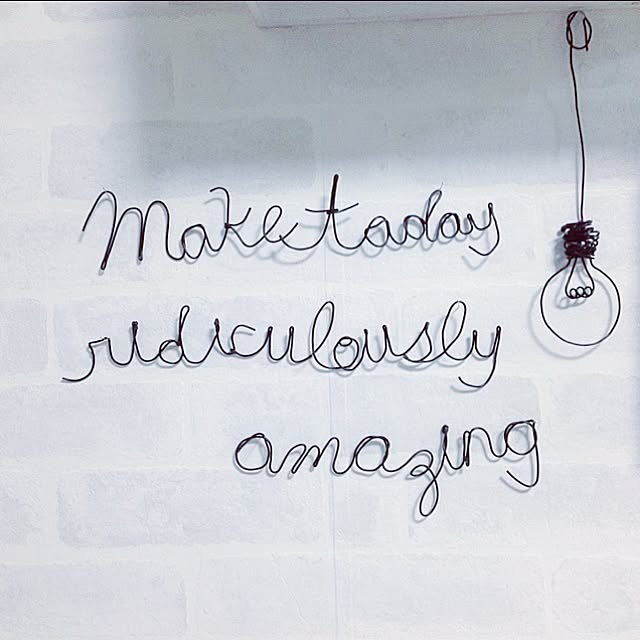 Make taday
ridiculously
amazing